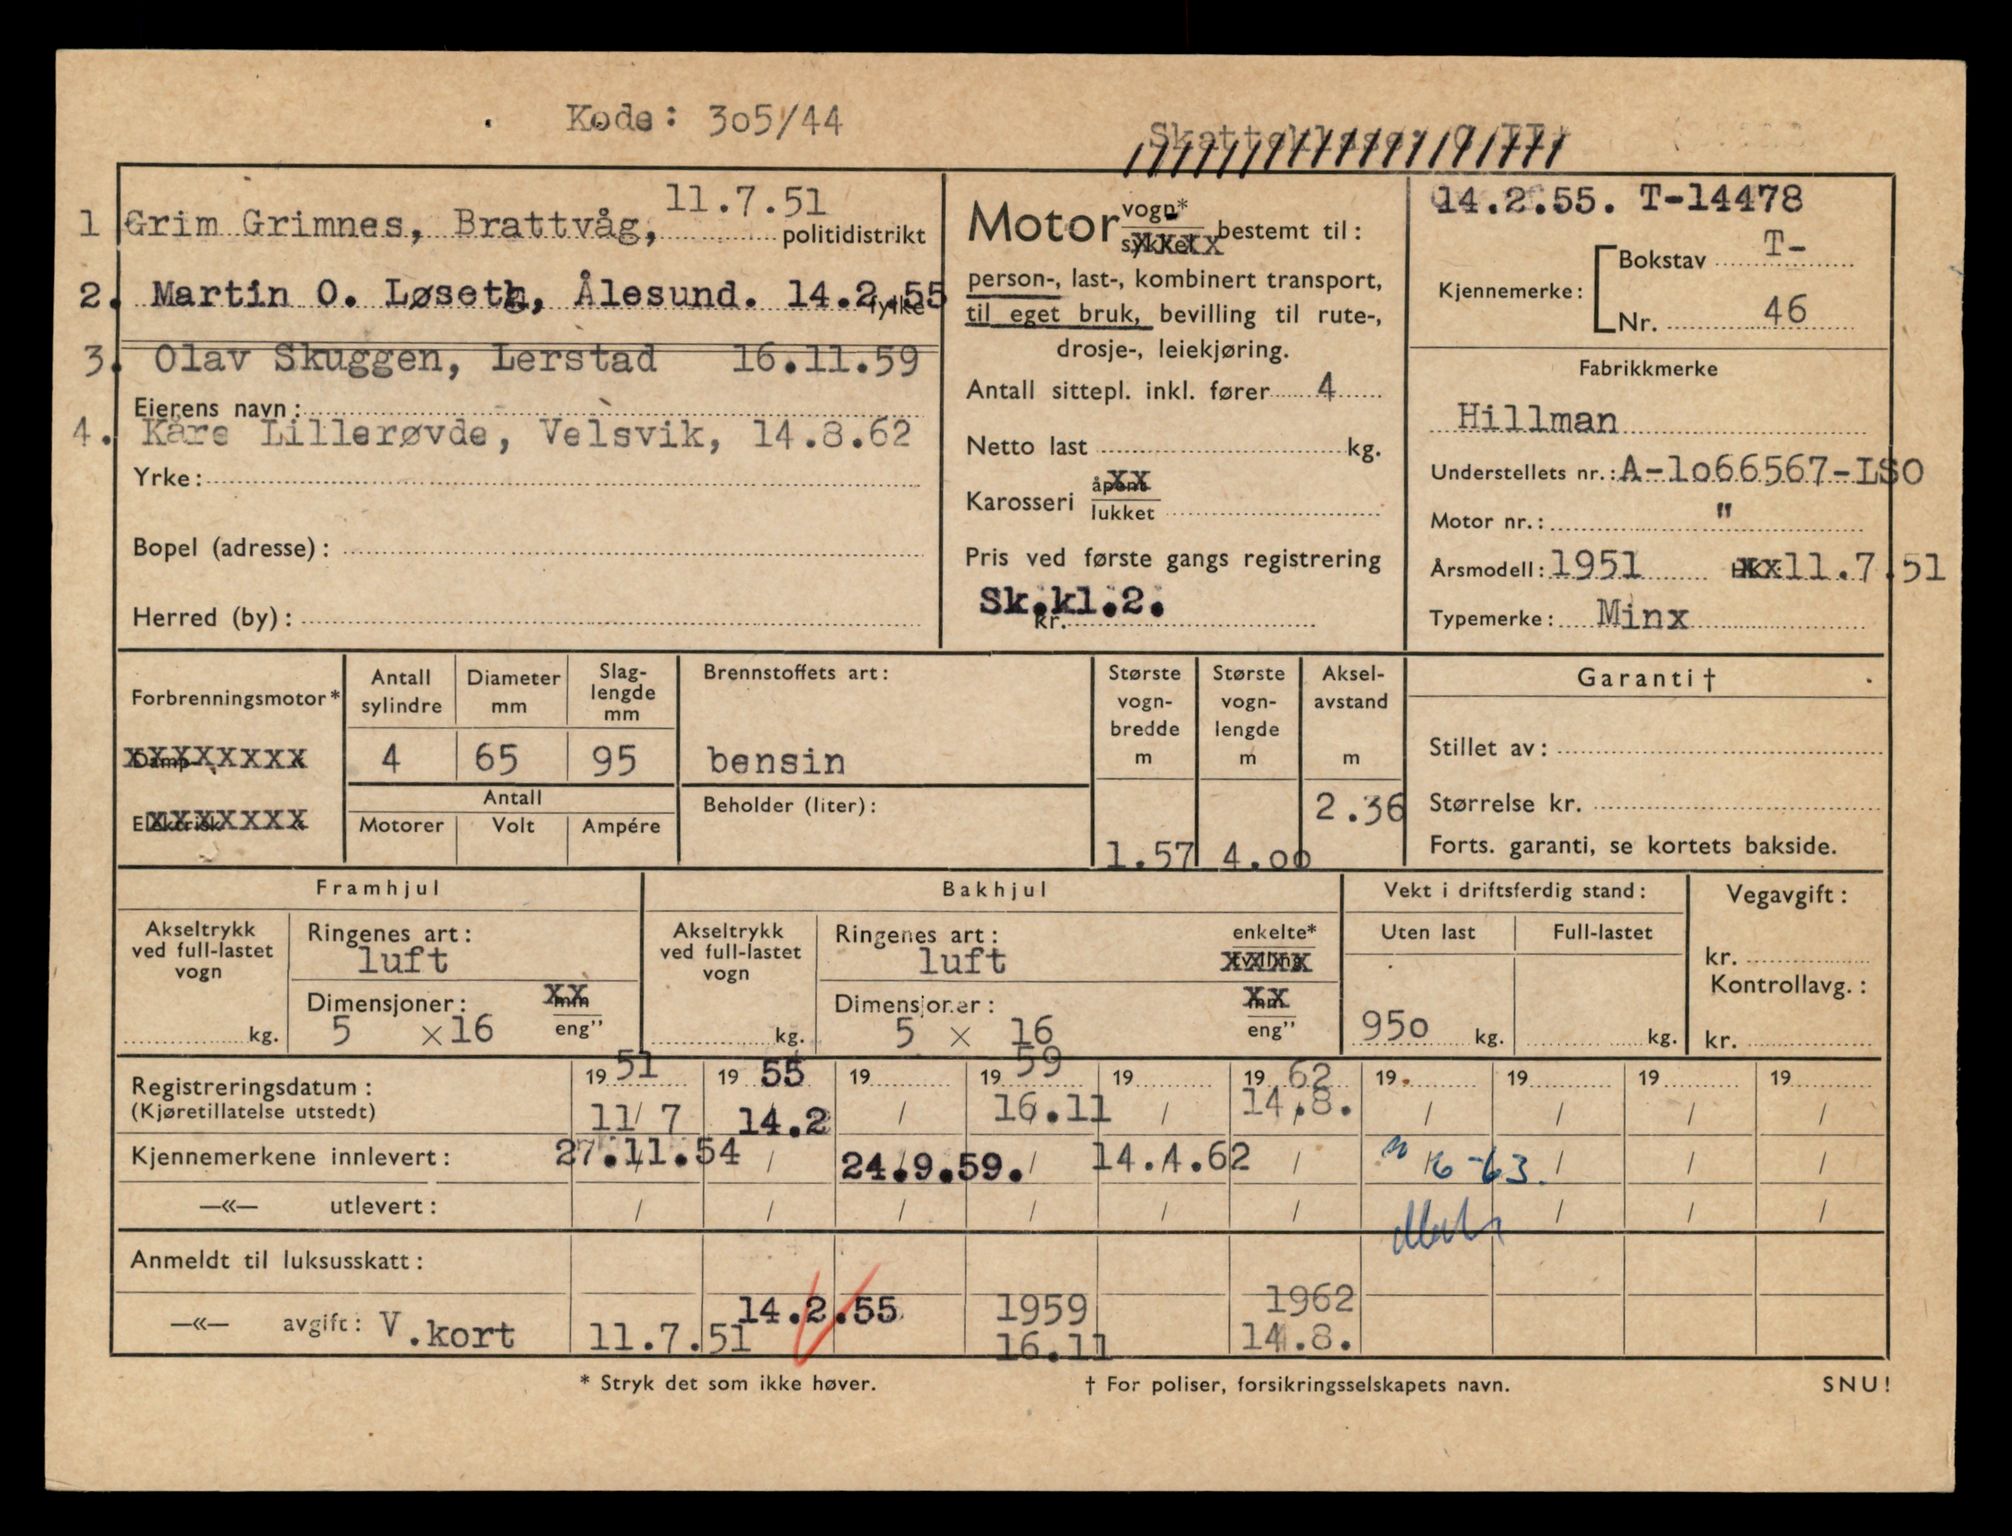 Kode: 3o5/44
11.7.51
1 Grim Grimnes, Brattvåg, politidistrikt
2. Martin O. Løseth, Ålesund. 14.2.55
fylke
3. Olav Skuggen, Lerstad 16.11.59
Eierens navn:
4. Kåre Lillerøvde, Velsvik, 14.8.62
Yrke:
Bopel (adresse):
Herred (by):
Motor vogn* sykkel bestemt til:
person-, last-, kombinert transport,
til eget bruk, bevilling til rute-,
drosje-, leiekjøring.
Antall sittepl. inkl. fører 4
Netto last kg.
Karosseri åpent lukket
Pris ved første gangs registrering
Sk.kl.2.
kr.
14.2.55. T-14478
Kjennemerke: Bokstav T-
Nr. 46
Fabrikkmerke
Hillman
Understellets nr.: A-1o66567-LSO
Motor nr.: "
Årsmodell: 1951 11.7.51
Typemerke: Minx
Forbrenningsmotor*
Damp
Elektrisk
Antall sylindre
4
Diameter mm
65
Slag-lengde mm
95
Antall
Motorer Volt Ampére
Brennstoffets art:
bensin
Beholder (liter):
Største vogn-bredde m
1.57
Største vogn-lengde m
4.oo
Aksel-avstand m
2.36
Garanti †
Stillet av:
Størrelse kr.
Forts. garanti, se kortets bakside.
Framhjul
Akseltrykk ved full-lastet vogn
kg.
Ringenes art:
luft
Dimensjoner: mm
5 × 16 eng"
Bakhjul
Akseltrykk ved full-lastet vogn
kg.
Ringenes art: enkelte*
luft tvilling
Dimensjoner: mm
5 × 16 eng"
Vekt i driftsferdig stand:
Uten last Full-lastet
950 kg. kg.
Vegavgift:
kr.
Kontrollavg.:
kr.
Registreringsdatum: 19 51 19 55 19 19 59 19 19 62 19 19 19 19
(Kjøretillatelse utstedt) 11/7 14.2 / 16.11 / 14.8. / / / /
Kjennemerkene innlevert: 27.11.54 / 24.9.59. / 14.4.62 / 16-63. / / /
—«— utlevert: / / / / / / / / /
Anmeldt til luksusskatt:
14.2.55 1959 1962
—«— avgift: V.kort 11.7.51 16.11 14.8.
* Stryk det som ikke høver.
† For poliser, forsikringsselskapets navn.
SNU!